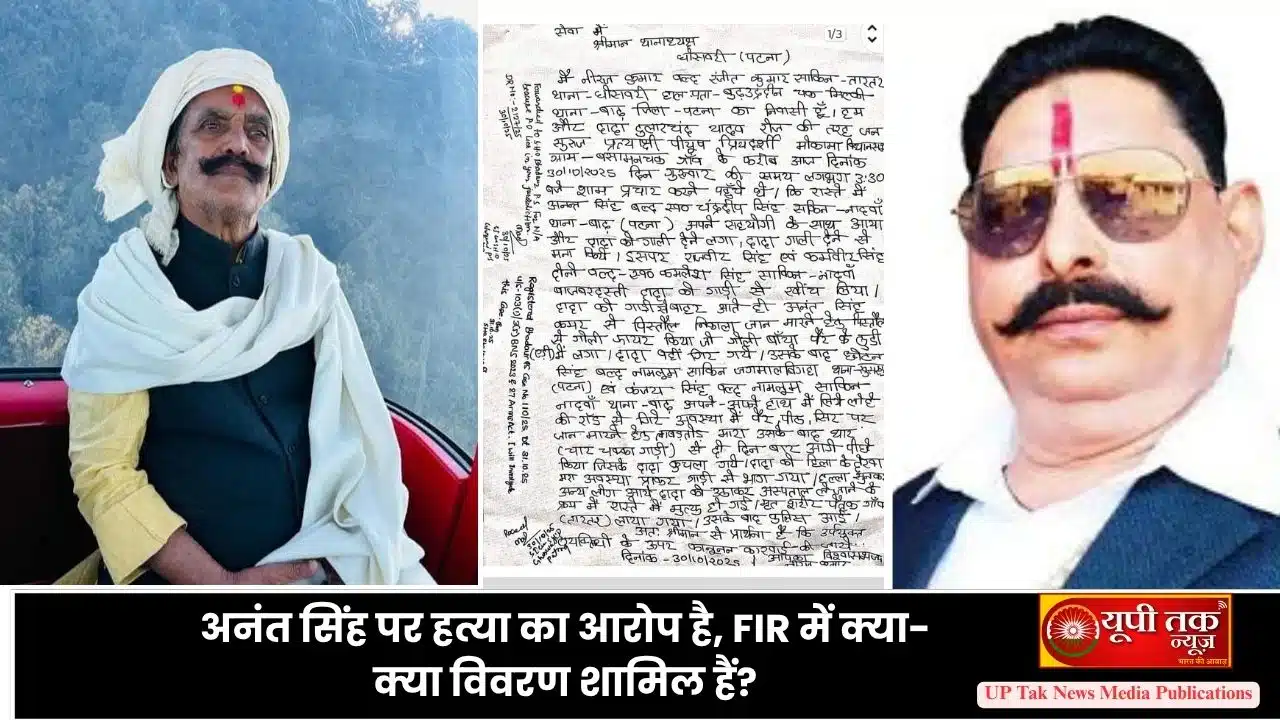 1/3
सेवा में
श्रीमान थानाध्यक्ष
घोसवरी (पटना)
मैं नीरज कुमार वल्द रंजीत कुमार साकिन - तारतर
थाना - घोसवरी हाल पता - बुद्धउद्दीन चक
थाना - बाढ़ जिला - पटना का निवासी हूँ। हम
और दादा दुलारचंद यादव रोज की तरह जन
सुराज प्रत्याशी पीयूष प्रियदर्शी मोकामा विधानसभा
ग्राम - बसामनचक गाँव के करीब आज दिनांक
30/10/2025 दिन गुरुवार की समय लगभग 3:30
बजे शाम प्रचार करने पहुँचे थे। कि रास्ते में
अनंत सिंह वल्द स्व० चंद्रदीप सिंह साकिन - नादवाँ
थाना - बाढ़ (पटना) अपने सहयोगी के साथ आया
और दादा को गाली देने लगा, दादा गाली देने से
मना किये। इसपर राजवीर सिंह एवं कर्मवीर सिंह
दोनों वल्द - स्व० कमलेश सिंह साकिन - नादवाँ
दादा को गाड़ी से खींच लिया।
दादा को गाड़ी से बाहर आते ही अनंत सिंह
कमर से पिस्तौल निकाला जान मारने हेतु पिस्तौल
से गोली फायर किया जो गोली बाँया पैर के
में लगा। दादा वहीं गिर गये। उसके बाद छोटन
सिंह वल्द नामलुम साकिन जगमालबिगहा थाना -
(पटना) एवं कंजय सिंह वल्द नामलुम साकिन -
नादवाँ थाना - बाढ़ अपने - अपने हाथ में लिये लोहे
की रॉड से गिरे अवस्था में पैर पीठ, सिर पर
जान मारने हेतु मारा उसके बाद थार
(चार चक्का गाड़ी) से दो तीन बार आगे पीछे
किया जिसके दादा कुचला गये। दादा को
मरा अवस्था गाड़ी से भाग गया। हल्ला सुनकर
अन्य लोग आये दादा को उठाकर अस्पताल ले जाने के
क्रम में रास्ते में मृत्यु हो गई। मृत शरीर पैतृक गाँव
(तारतर) लाया गया। उसके बाद पुलिस आई।
अतः श्रीमान से प्रार्थना है कि उपर्युक्त
के ऊपर कानूनन कारवाई की जाये।
दिनांक - 30/10/2025
अनंत सिंह पर हत्या का आरोप है, FIR में क्या-
क्या विवरण शामिल हैं?
यूपी तक
न्यूज़
भारत की आवाज़
UP Tak News Media Publications